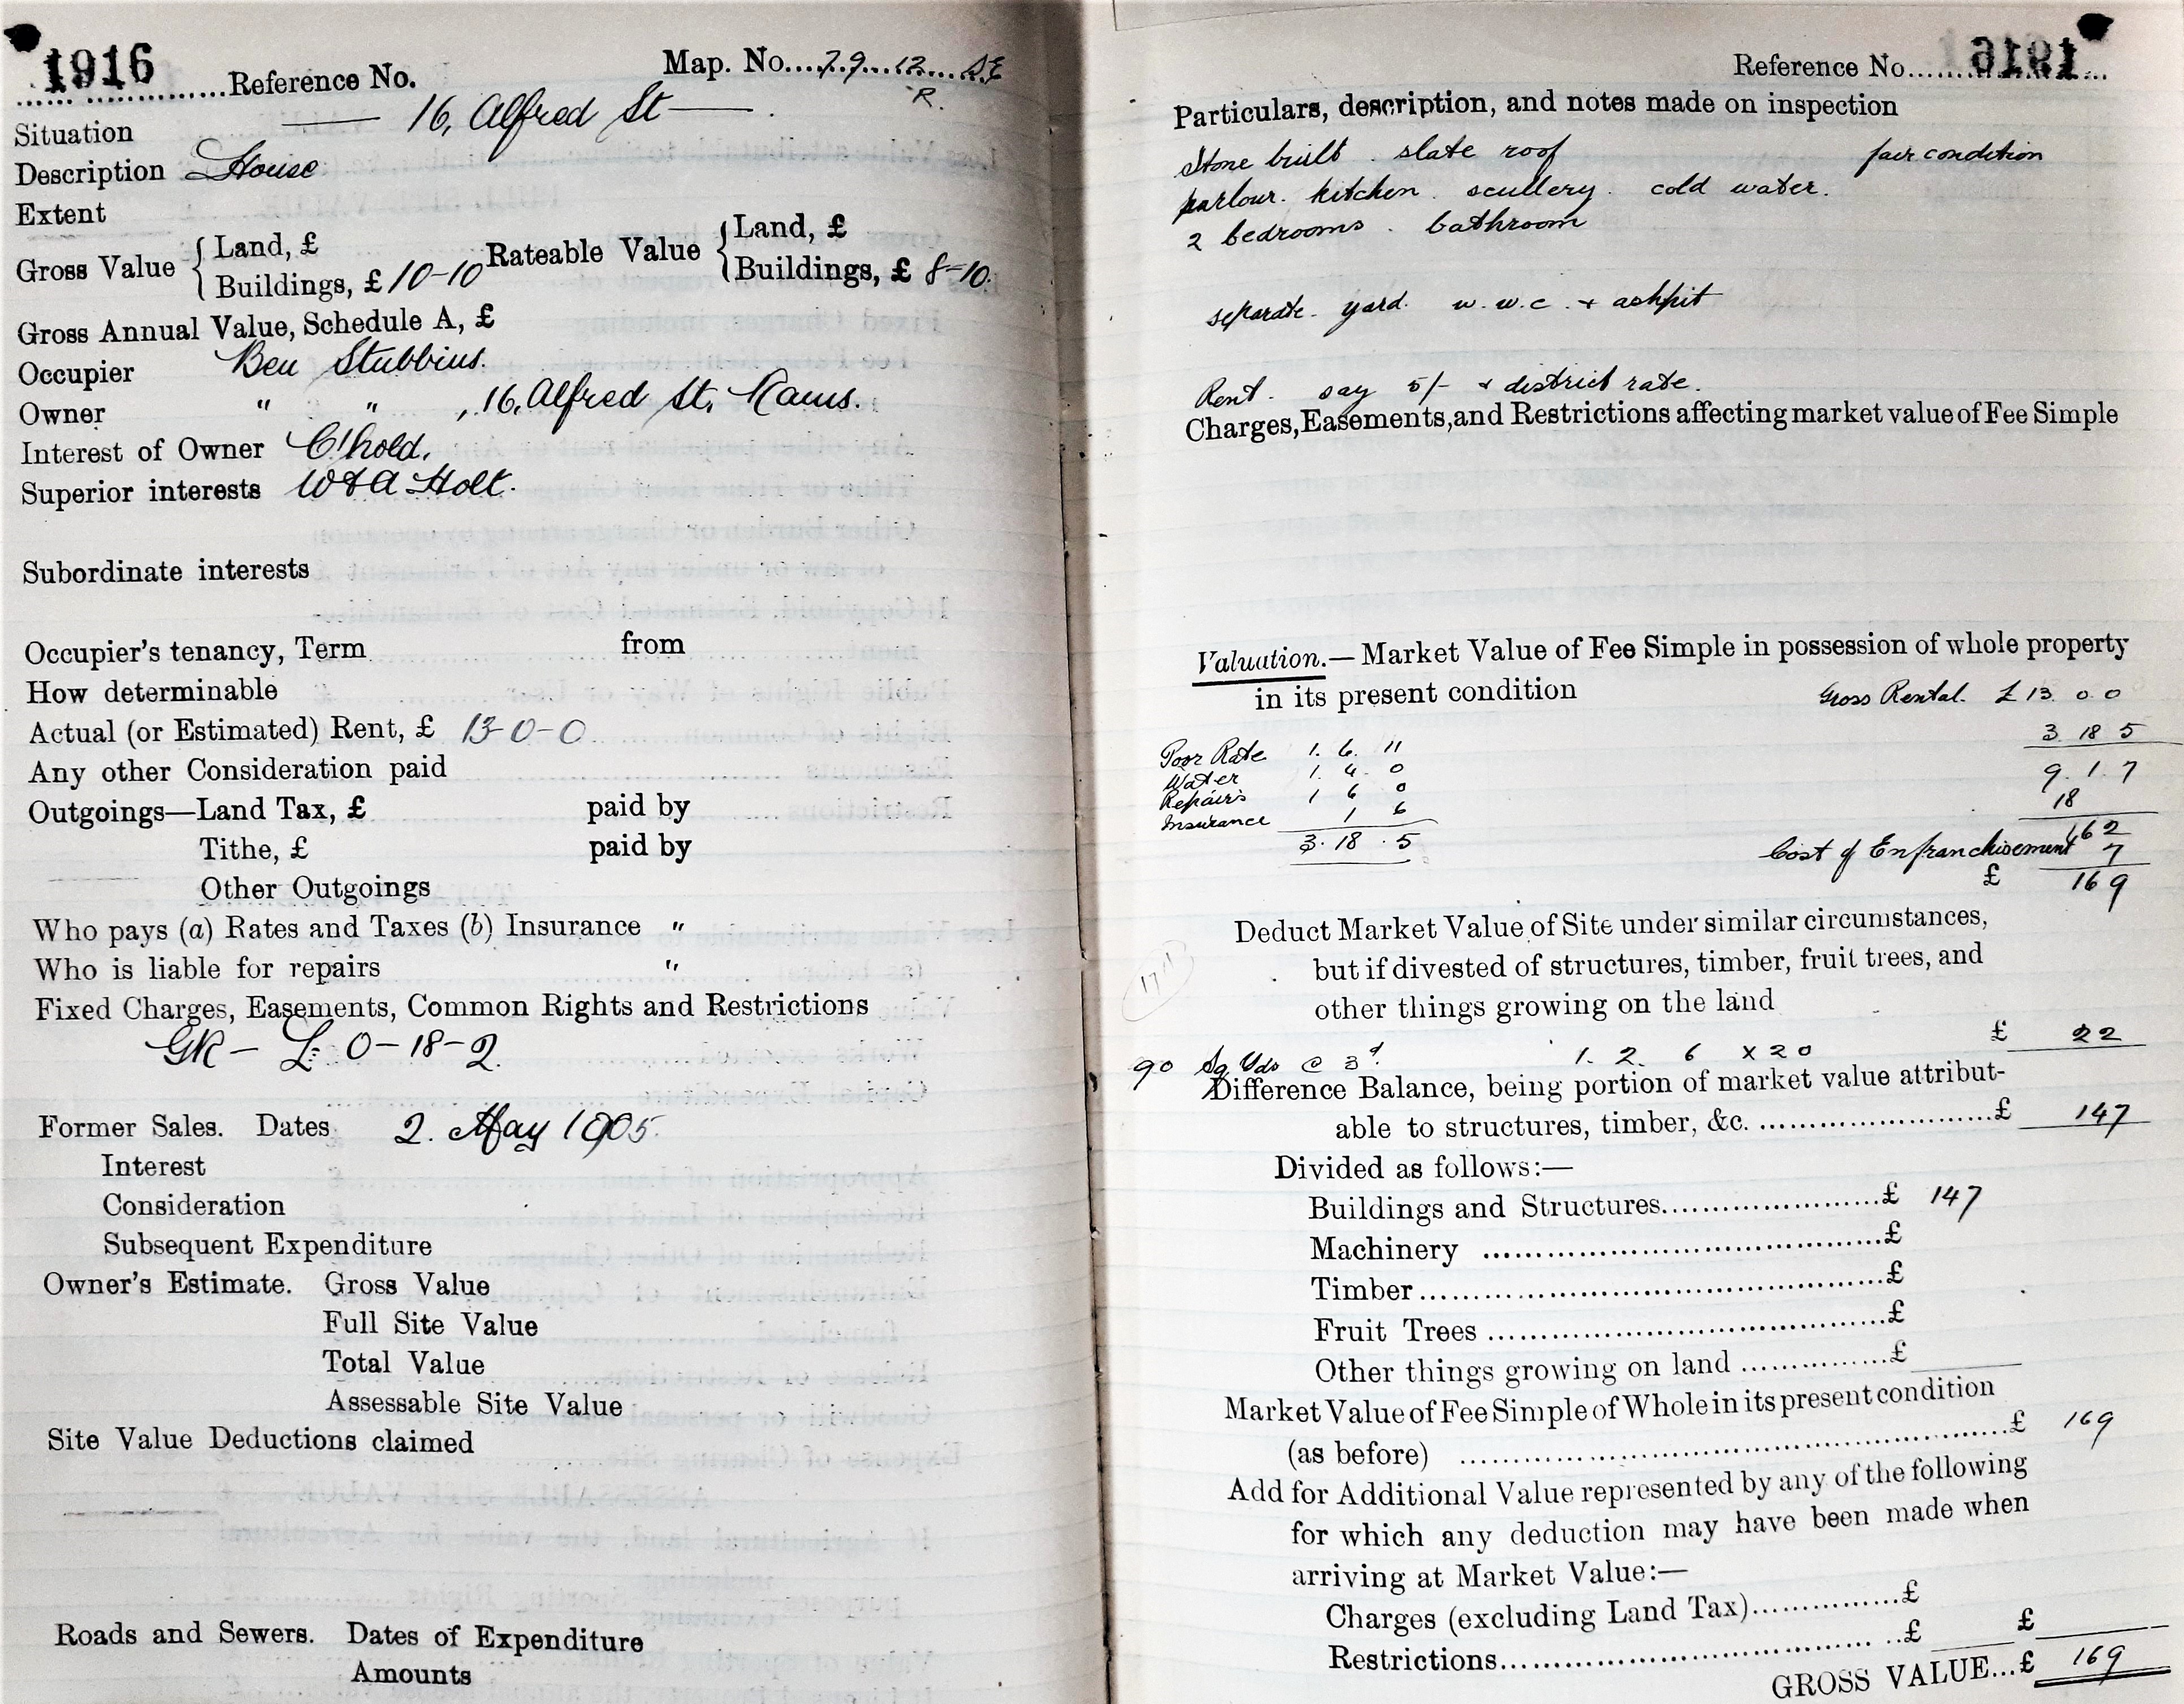 1916 Reference No. Map. No. 79 12 SE
R.
Situation 16, Alfred St
Description House
Extent
Gross Value { Land, £ Rateable Value { Land, £
Buildings, £ 10-10 Buildings, £ 8-10.
Gross Annual Value, Schedule A, £
Occupier Ben Stubbins.
Owner " " , 16, Alfred St, Rams.
Interest of Owner C'hold.
Superior interests W & A Holt.
Subordinate interests
Occupier's tenancy, Term from
How determinable
Actual (or Estimated) Rent, £ 13-0-0
Any other Consideration paid
Outgoings—Land Tax, £ paid by
Tithe, £ paid by
Other Outgoings
Who pays (a) Rates and Taxes (b) Insurance "
Who is liable for repairs "
Fixed Charges, Easements, Common Rights and Restrictions
GR - £: 0-18-2.
Former Sales. Dates 2. May 1905.
Interest
Consideration
Subsequent Expenditure
Owner's Estimate. Gross Value
Full Site Value
Total Value
Assessable Site Value
Site Value Deductions claimed
Roads and Sewers. Dates of Expenditure
Amounts
Reference No. 1916
Particulars, description, and notes made on inspection
Stone built . slate roof fair condition
parlour. kitchen. scullery. cold water.
2 bedrooms . bathroom
separate. yard. w.w.c. + ashpit
Rent. say 5/- + district rate.
Charges, Easements, and Restrictions affecting market value of Fee Simple
Valuation.—Market Value of Fee Simple in possession of whole property
in its present condition Gross Rental. £ 13. 0 0
3 18 5
Poor Rate 1. 6. 11
9. 1. 7
Water 1. 4. 0
Repairs 1 6 0
18
Insurance 1 6
162
3. 18 . 5
Cost of Enfranchisement 7
£ 169
Deduct Market Value of Site under similar circumstances,
but if divested of structures, timber, fruit trees, and
other things growing on the land
£ 22
90 Sq Yds @ 3d. 1. 2. 6 x 20
Difference Balance, being portion of market value attribut-
able to structures, timber, &c. £ 147
Divided as follows:—
Buildings and Structures £ 147
Machinery £
Timber £
Fruit Trees £
Other things growing on land £
Market Value of Fee Simple of Whole in its present condition
(as before) £ 169
Add for Additional Value represented by any of the following
for which any deduction may have been made when
arriving at Market Value:—
Charges (excluding Land Tax) £
Restrictions £ £
GROSS VALUE...£ 169